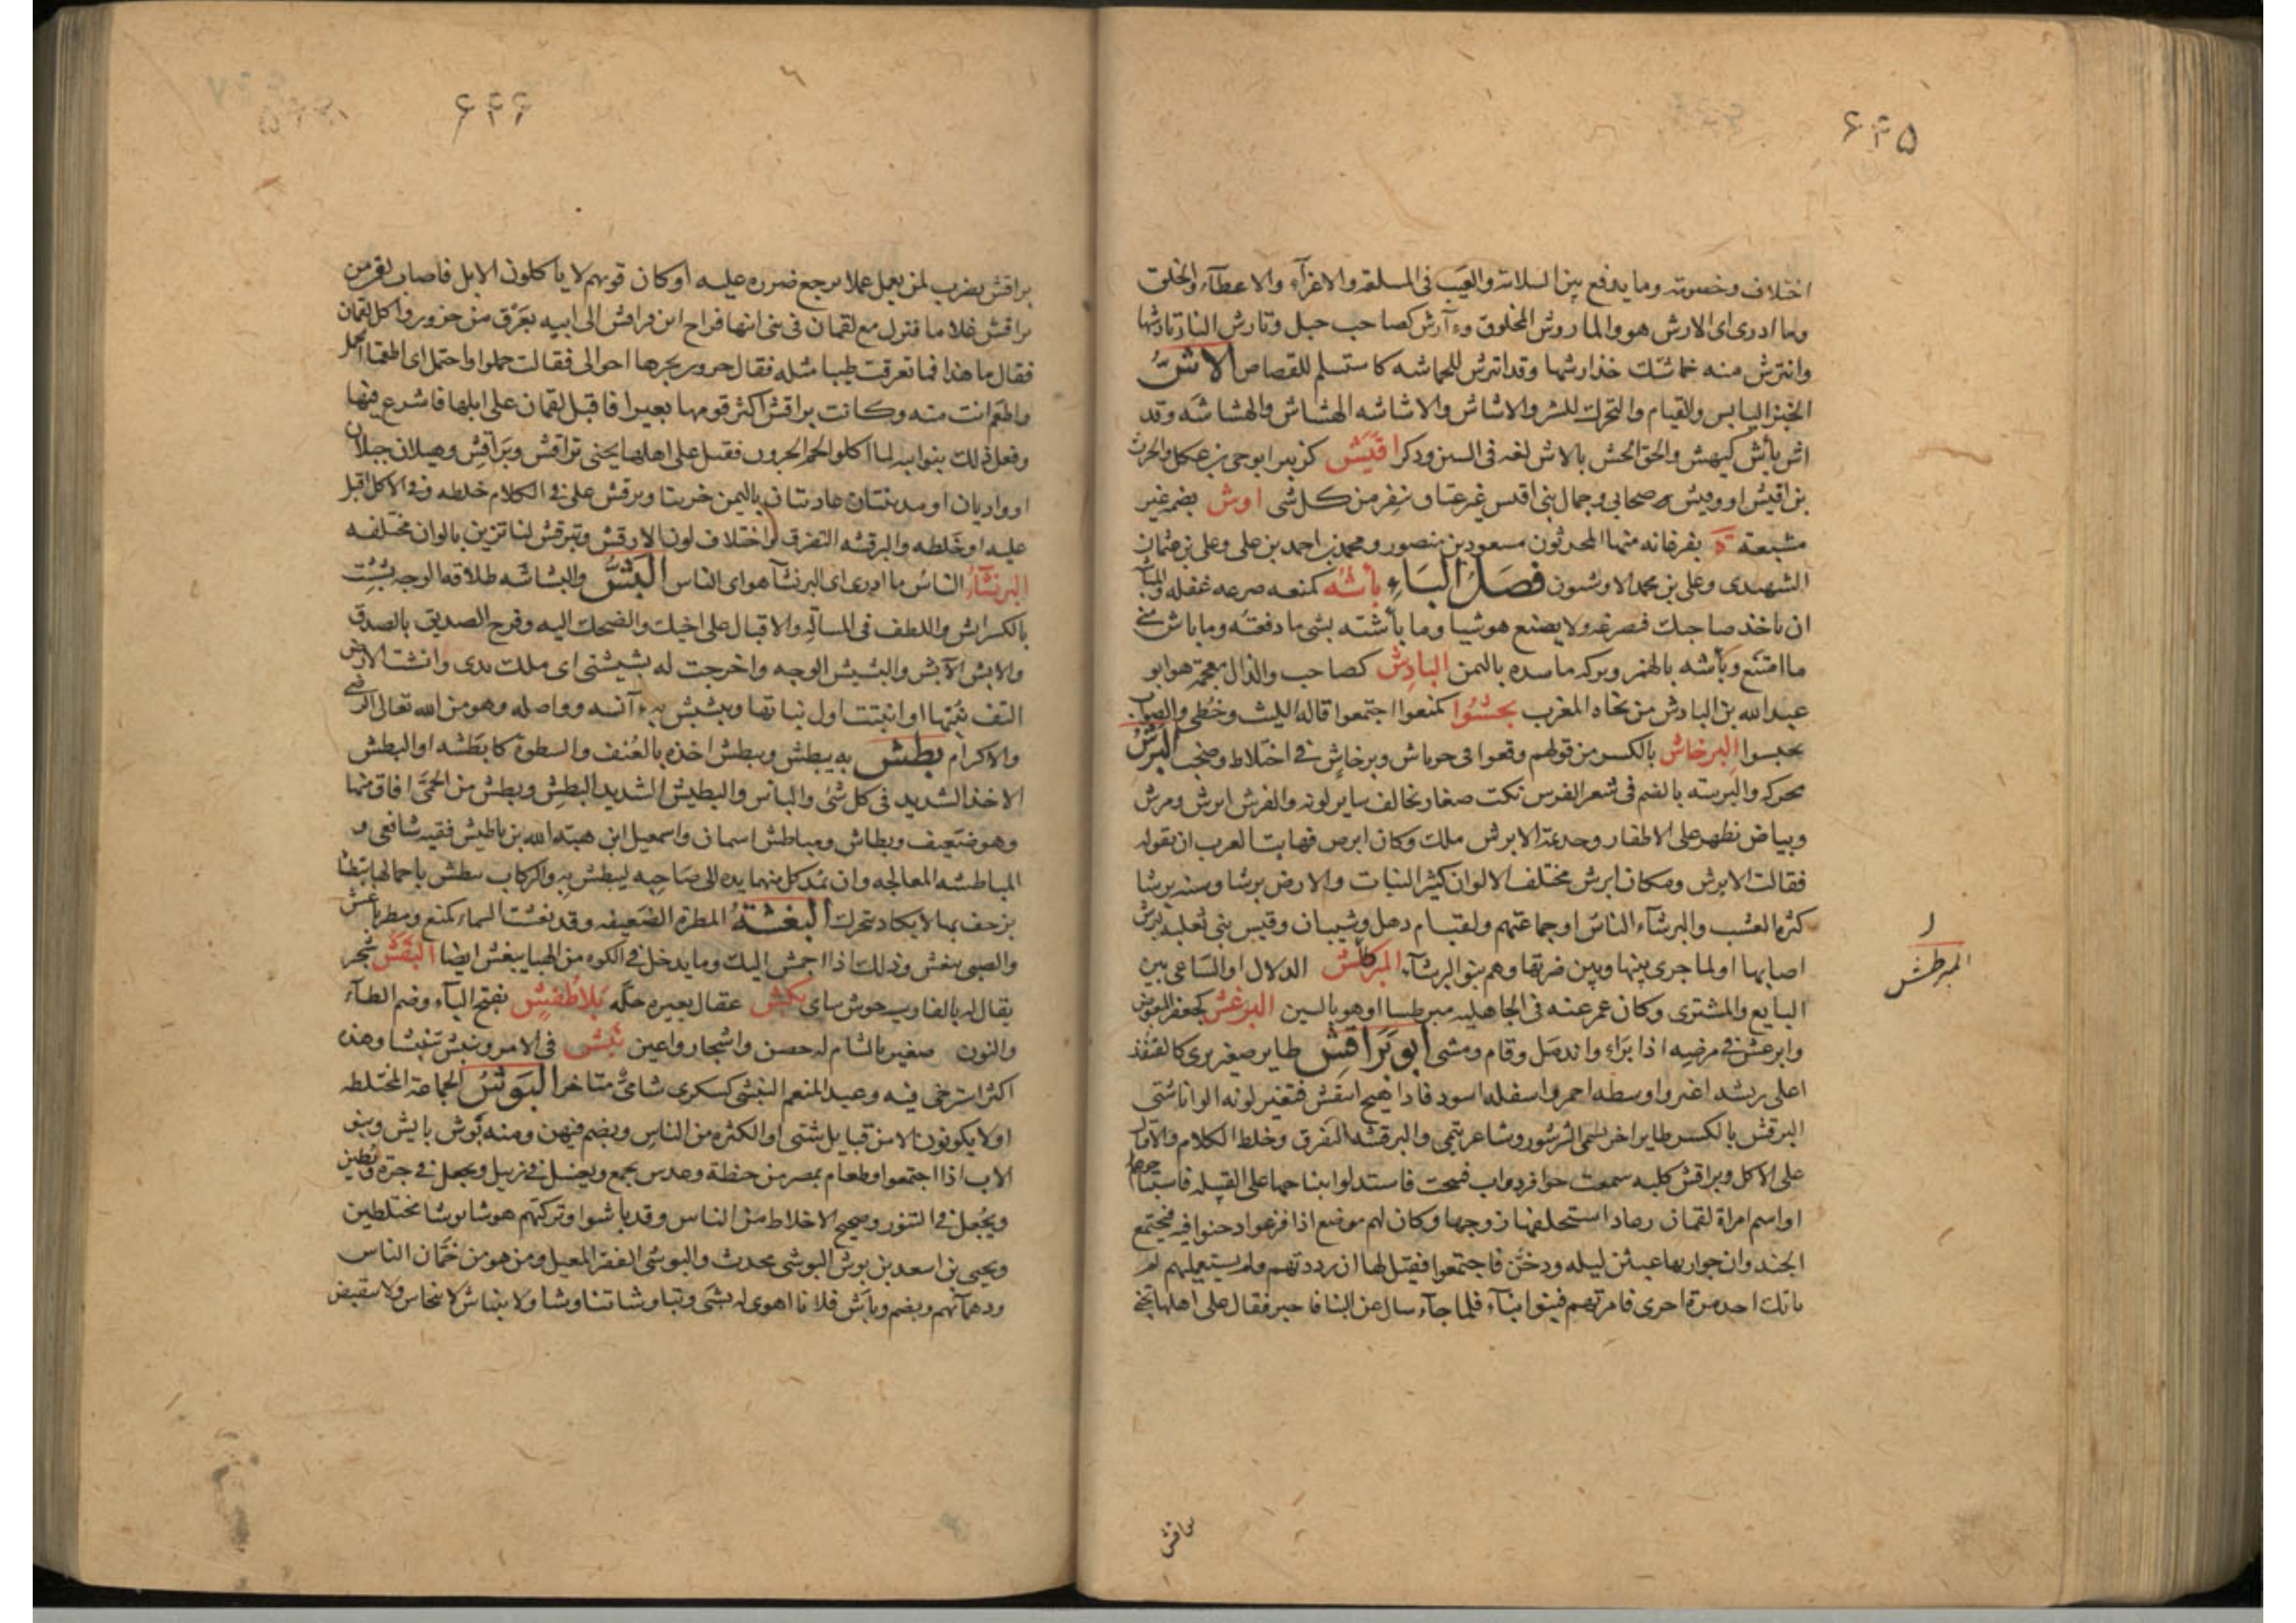 ۶۲۵
اختلاف وخصومته ومايدفع بين السلامة والعيب فى السلعة والاغراء والاعطاء والخلق
وما ادرى اى الارش هو والماروش المخلوق وءآرش كصاحب جبل وتارش النار تاديثها
وانترش منه خماشتك خذ ارشها وقد اترش للخماشه كاستسلم للقصاص الاشّ
الخبز اليابس والقيام والتحرك للشر والاشاش والاشاشه الهشاش والهشاشه وقد
اش يأش كيهش والحق الحش بالاش لغه فى السين وذكر اقيش كزبير ابوحى بن عكل والحرث
بن اقيش او وقيش صحابى وجمال بنى اقيس غير عتاق تنفر من كل شى اوش بضمه غير
مشبعة ة بفرغانه منها المحدثون مسعود بن منصور ومحمد بن احمد بن على وعلى بن عثمان
الشهيدى وعلى بن محمد الاوشيون فصل الباء بأشه كمنعه صرعه غفله والمبأ
ان ياخذ صاحبك فصرعه ولا يصنع هو شيا وما بأشته بشى ما دفعته وما باش منى
ما امتنع وبأشه بالهمز وبركه ماسده باليمن البادش كصاحب والذال معجمة هو ابو
عبدالله بن البادش من نحاه المغرب بحشوا كمنعوا اجتمعوا قاله الليث وخُطى والصواب
تحبسوا البرخاش بالكسر من قولهم وقعوا فى خرباش وبرخاش فى اختلاط وصخب البرش
محركه والبرشه بالضم فى شعر الفرس نكت صغار تخالف ساير لونه والفرش ابرش ومرش
وبياض يظهر على الاظفار وجديمة الابرش ملك وكان ابرص فهابت العرب ان تقوله
فقالت الابرش ومكان ابرش مختلف الالوان كثير النبات والارض برشا وسنه برشا
كثره العشب والبرشآء الناس او جماعتهم ولقب ام دهل وشيبان وقيس بنى ثعلبه لبرش
اصابها او لما جرى بينها وبين ضرتها وهم بنو البرشآء المبرطش الدلال او الساعى بين
البايع والمشترى وكان عمر عنه فى الجاهليه مبرطسا او هو بالسين البرغش كجعفر البعوض
وابرغش فى مرضه اذا براء واندمل وقام ومشى ابو براقش طاير صغير برى كالقنفذ
اعلى ريشه اغبر واوسطه احمر واسفله اسود فاذا هيج انتفش فتغير لونه الوانا شتى
البرقش بالكسر طاير اخر يسمى الشرشور وشاعر تيمى والبرقشه التفرق وخلط الكلام والاقبال
على الاكل وبراقش كلبه سمعت حوافر دواب فنبحت فاستدلوا بنباحها على القبيله فاستباحوها
او اسم امراة لقمان بن عاد استخلفها زوجها وكان لهم موضع اذا فزعوا دخنوا فيه فيجتمع
الجند وان جواريها عبثن ليله ودخنّ فاجتمعوا فقيل لها ان رددتهم ولم يستعمليهم لم
ياتك احد مرة اخرى فامرتهم فبنوا بنآء فلما جآء سال عن البنا فاخبر فقال على اهلها تجنى
ر
المبرطش
براقش
۶۲۶
براقش يضرب لمن يعمل عملا يرجع ضرره عليه او كان قومهم لا ياكلون الابل فاصاب لقمن من
براقش غلاما فنزل مع لقمان فى بنى ابيها فراح ابن براقش الى ابيه بعرق من جزور واكل لقمان
فقال ما هذا فما تعرقت طيبا مثله فقال جزور نحرها اخوالى فقالت جملوا واجتمل اى اطعمنا الجمل
واطعم انت منه وكانت براقش اكثر قومها بعيرا فاقبل لقمان على ابلها فاشرع فيها
وفعل ذلك بنوا ابيه لما اكلوا لحم الجزور فقيل على اهلها يجنى براقش وبراقش وهيلان جبلان
او واديان او مدينتان عاديتان باليمن خربتا وبرقش على فى الكلام خلطه وفى الاكل اقبل
عليه او خلطه والبرقشه التفرق واختلاف لون الارقش وتبرقش لنا تزين بالوان مختلفه
البرنشآء الناس ما ادرى اى البرنشآ هو اى الناس البشّ والبشاشه طلاقه الوجه بششت
بالكسر ابش واللطف فى المسآله والاقبال على اخيك والضحك اليه وفرح الصديق بالصديق
والابش الآبش والبشيش الوجه واخرجت له بشيشتى اى ملك يدى وابشت الارض
التف نبتها او انبتت اول نباتها وتبشبش به آنسه وواصله وهو من الله تعالى الرضى
والاكرام بطش به يبطش ويبطش اخذه بالعنف والسطوة كابطشه او البطش
الاخذ الشديد فى كل شى والباس والبطيش الشديد البطش وبطش من الحمّى افاق منها
وهو ضعيف وبطاش ومباطش اسمان واسمعيل ابن هبة الله بن باطيش فقيه شافعى و
المباطشه المعالجه وان يمد كل منهما يده الى صاحبه ليبطش به والركاب تبطش باحمالها تبطشا
تزحف بها لا يكاد تتحرك البغشة المطرة الضعيفه وقد بغشت السماء كمنع ومطر باغش
والصبى يبغش وذلك اذا اجهش اليك وما يدخل فى الكوه من الهبا يبغش ايضا البقش شجر
يقال له بالفارسيه خوش ساى بكش عقال بعيره حله بلاطنش بفتح البآء وضم الطآء
والنون صغير بالشام له حصن واشجار واعين بنش فى الامر وبنش تبنيشا وهذه
اكثر استرخى فيه وعبد المنعم البنشى كسكرى شاعى متاخر البوش الجماعة المختلطه
او لا يكونون الا من قبايل شتى او الكثره من الناس ويضم فيهن ومنه بوش بايش وبنو
الاب اذا اجتمعوا وطعام بمصر من حنطة وعدس يجمع ويغسل فى زبيل ويجعل فى جرة ويطين
ويجعل فى التنور وضجيج الاخلاط من الناس وقد باشوا وتركتهم هوشا بوشا مختلطين
ويحيى بن اسعد بن بوش البوشى محدث والبوشى الفقير المعيل ومن هو من خمان الناس
ودهمآئهم ويضم وباش فلانا اهوى له بشى وتباوشا تناوشا ولا ينباش لا ينحاس ولا ينقبض